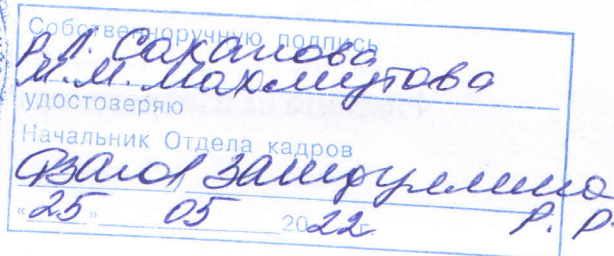 Собственноручную подпись
Р.Л. Сахапова
М.М. Махмутова
удостоверяю
Начальник Отдела кадров
Зайдуллина
«25» 05 2022 г.
Р. Р.